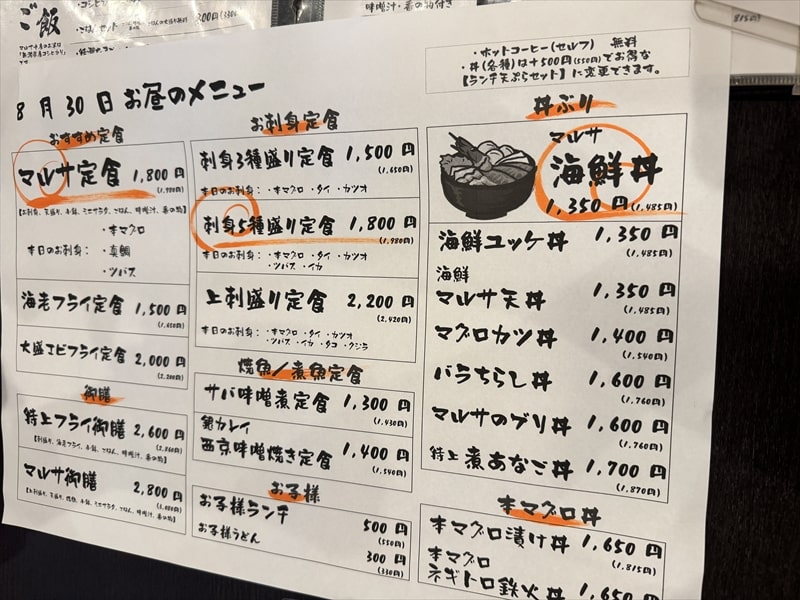 ご飯
味噌汁・香の物付き
8月30日お昼のメニュー
・ホットコーヒー(セルフ) 無料
・丼(各種)は+500円(550円)でお得な
【ランチ天ぷらセット】に変更できます。
おすすめ定食
マルサ定食 1,800円
(1,980円)
・本マグロ
本日のお刺身: ・真鯛
・ツバス
海老フライ定食 1,500円
(1,650円)
大盛エビフライ定食 2,000円
(2,200円)
御膳
特上フライ御膳 2,600円
(2,860円)
マルサ御膳 2,800円
お刺身定食
刺身3種盛り定食 1,500円
(1,650円)
本日のお刺身: ・本マグロ ・タイ ・カツオ
刺身5種盛り定食 1,800円
(1,980円)
本日のお刺身: ・本マグロ ・タイ ・カツオ
・ツバス ・イカ
上刺盛り定食 2,200円
(2,420円)
本日のお刺身: ・本マグロ ・タイ ・カツオ
・ツバス ・イカ ・タコ ・クジラ
焼魚/煮魚定食
サバ味噌煮定食 1,300円
(1,430円)
銀カレイ
西京味噌焼き定食 1,400円
(1,540円)
お子様
お子様ランチ 500円
(550円)
お子様うどん 300円
(330円)
丼ぶり
マルサ
海鮮丼
1,350円(1,485円)
海鮮ユッケ丼 1,350円
(1,485円)
海鮮
マルサ天丼 1,350円
(1,485円)
マグロカツ丼 1,400円
(1,540円)
バラちらし丼 1,600円
(1,760円)
マルサのブリ丼 1,600円
(1,760円)
特上煮あなご丼 1,700円
(1,870円)
本マグロ丼
本マグロ漬け丼 1,650円
(1,815円)
本マグロ
ネギトロ鉄火丼 1,650円